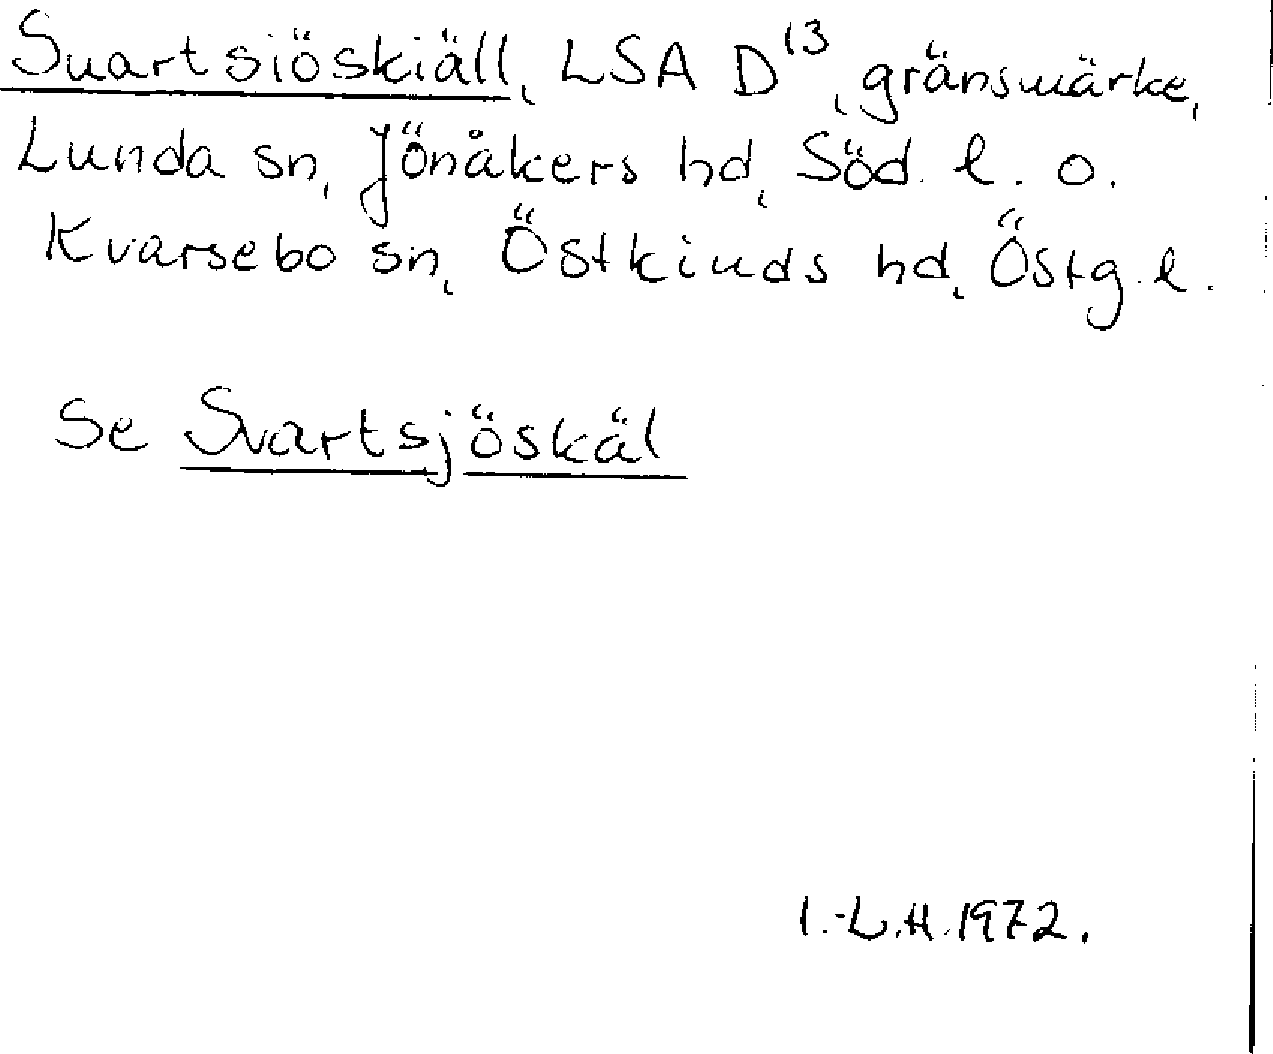 Suartsiöskiäll, LSA D¹³, gränsmärke,
Lunda sn, Jönåkers hd, Söd. l. o.
Kvarsebo sn, Östkinds hd, Östg. l.
Se Svartsjöskäl
I.-L.H. 1972.